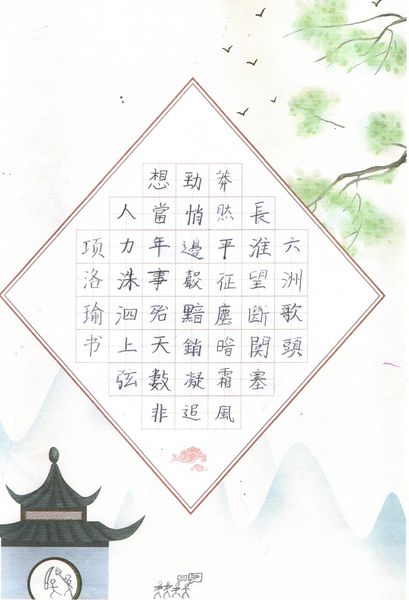 六洲歌頭
長淮望斷関塞
莽然平征塵暗霜風
勁悄邊聲黯銷凝追
想當年事殆天數非
人力洙泗上弦
项洛瑜书